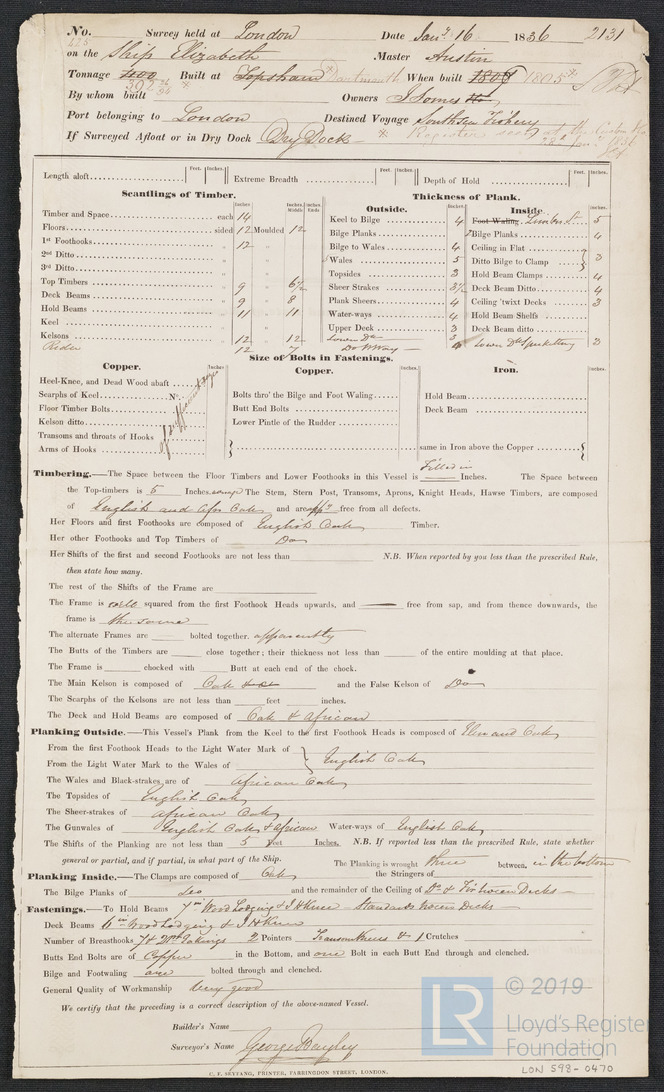 No. 425 Survey held at London Date Jany. 16 1836 2131
on the Ship Elizabeth Master Austin
Tonnage 400 Built at Topsham Dartmouth When built 1808 1805 *
By whom built * Owners J Somes
Port belonging to London Destined Voyage Southsea Fishery
If Surveyed Afloat or in Dry Dock Dry Dock *
Length aloft Feet. Inches. Extreme Breadth Feet. Inches. Depth of Hold Feet. Inches.
Scantlings of Timber. Thickness of Plank.
Outside. Inside.
Timber and Space each 14
Floors sided 12 Moulded 12
1st Foothooks 12
2nd Ditto
3rd Ditto
Top Timbers 9 6½
Deck Beams 9 8
Hold Beams 11 11
Keel
Kelsons 12 12
Rider 12 7
Keel to Bilge 4
Bilge Planks
Bilge to Wales 4
Wales 5
Topsides 3
Sheer Strakes 3½
Plank Sheers 4
Water-ways 4
Upper Deck 3
Foot Waling Limber St 5
Bilge Planks 4
Ceiling in Flat
Ditto Bilge to Clamp 3
Hold Beam Clamps 4
Deck Beam Ditto 4
Ceiling 'twixt Decks 3
Hold Beam Shelfs
Deck Beam ditto
Lower Dk Spirketting 3
Size of Bolts in Fastenings.
Copper. Copper. Iron.
Heel-Knee, and Dead Wood abaft
Scarphs of Keel No.
Floor Timber Bolts
Kelson ditto
Transoms and throats of Hooks
Arms of Hooks
of sufficient size
Bolts thro' the Bilge and Foot Waling
Butt End Bolts
Lower Pintle of the Rudder
Hold Beam
Deck Beam
same in Iron above the Copper
Timbering.—The Space between the Floor Timbers and Lower Foothooks in this Vessel is Filled in Inches. The Space between
the Top-timbers is 5 Inches. The Stem, Stern Post, Transoms, Aprons, Knight Heads, Hawse Timbers, are composed
of English and Afn Oak and are free from all defects.
Her Floors and first Foothooks are composed of English Oak Timber.
Her other Foothooks and Top Timbers of Do
Her Shifts of the first and second Foothooks are not less than N.B. When reported by you less than the prescribed Rule,
then state how many.
The rest of the Shifts of the Frame are
The Frame is well squared from the first Foothook Heads upwards, and — free from sap, and from thence downwards, the
frame is the same
The alternate Frames are bolted together. apparently
The Butts of the Timbers are close together; their thickness not less than of the entire moulding at that place.
The Frame is chocked with Butt at each end of the chock.
The Main Kelson is composed of Oak and the False Kelson of Do
The Scarphs of the Kelsons are not less than feet inches.
The Deck and Hold Beams are composed of Oak & African
Planking Outside.—This Vessel's Plank from the Keel to the first Foothook Head is composed of Elm and Oak
From the first Foothook Heads to the Light Water Mark of
From the Light Water Mark to the Wales of } English Oak
The Wales and Black-strakes are of African Oak
The Topsides of English Oak
The Sheer-strakes of African Oak
The Gunwales of English Oak & African Water-ways of English Oak
The Shifts of the Planking are not less than 5 Feet Inches. N.B. If reported less than the prescribed Rule, state whether
general or partial, and if partial, in what part of the Ship. The Planking is wrought three between. in the bottom
Planking Inside.—The Clamps are composed of Oak the Stringers of
The Bilge Planks of Do and the remainder of the Ceiling of Do & Fir tween Decks —
Fastenings.—To Hold Beams 7 in Wood Lodging & I H Knee — Standards tween Decks
Deck Beams 6 in Wood Lodging & I H Knee
Number of Breasthooks 2 Pointers Transom Knees & 1 Crutches
Butts End Bolts are of Copper in the Bottom, and one Bolt in each Butt End through and clenched.
Bilge and Footwaling are bolted through and clenched.
General Quality of Workmanship Very good
We certify that the preceding is a correct description of the above-named Vessel.
Builder's Name
Surveyor's Name George Bayley
C. F. SEYFANG, PRINTER, FARRINGDON STREET, LONDON.
© 2019
LR Lloyd's Register
Foundation
LON 598-0470